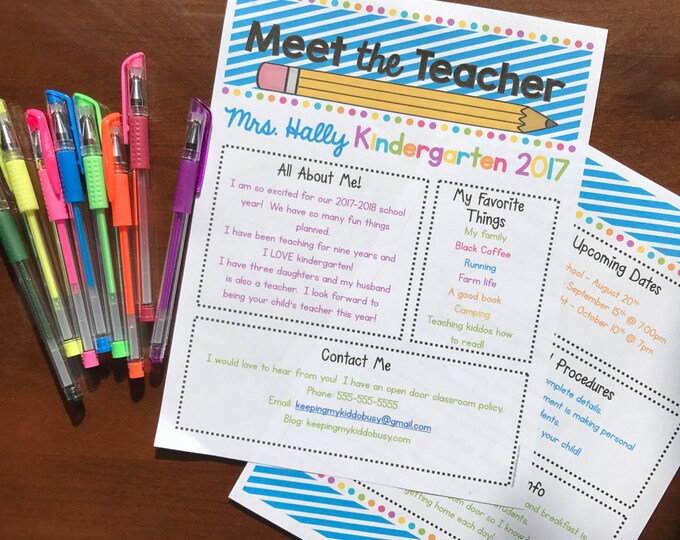 Meet the Teacher
Mrs. Hally Kindergarten 2017
All About Me!
I am so excited for our 2017-2018 school
year! We have so many fun things
planned.
I have been teaching for nine years and
I LOVE kindergarten!
I have three daughters and my husband
is also a teacher. I look forward to
being your child's teacher this year!
My Favorite
Things
My family
Black Coffee
Running
Farm life
A good book
Camping
Teaching kiddos how
to read!
Contact Me
I would love to hear from you! I have an open door classroom policy.
Phone: 555-555-5555
Email: keepingmykiddobusy@gmail.com
Blog: keepingmykiddobusy.com
Upcoming Dates
- August 20th
September 15th @ 7:00pm
- October 10th @ 7pm
Procedures
complete details.
is making personal
your child!
and breakfast is
door so I know
getting home each day!